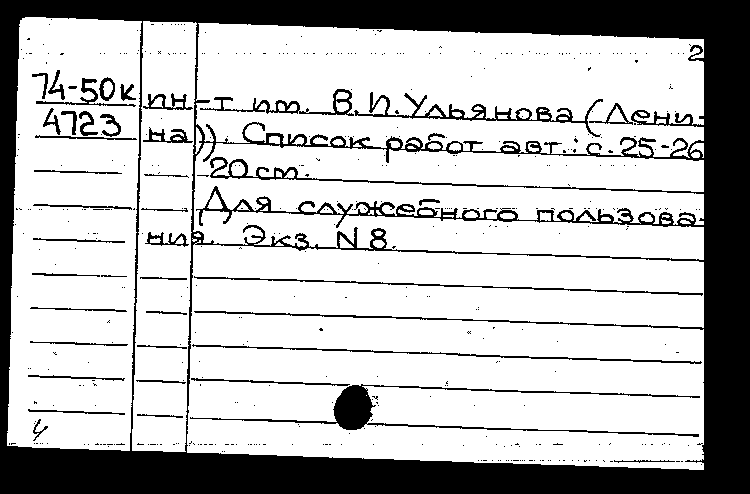 2
74-50к ин-т им. В.И.Ульянова (Лени-
4723 на)). Список работ авт.: с. 25-26
20 см.
Для служебного пользова-
ния. Экз. N 8.